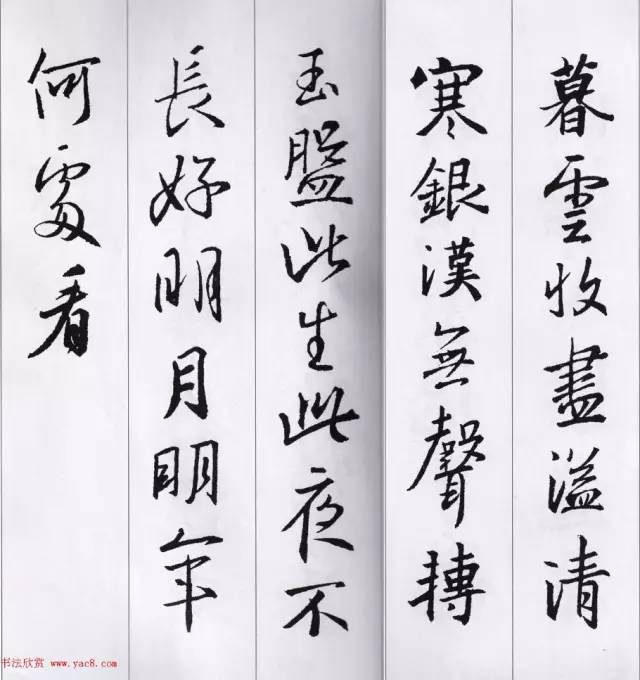 暮雲收盡溢清
寒銀漢無聲轉
玉盤此生此夜不
長好明月明年
何處看
书法欣赏 www.yac8.com